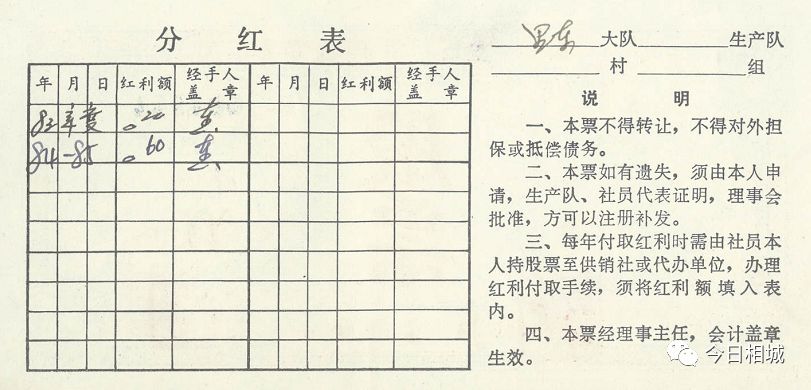 分红表
年 月 日 红利额 经手人盖章 年 月 日 红利额 经手人盖章
83年度 0.20
84-85 0.60
大队 生产队
村 组
说明
一、本票不得转让，不得对外担
保或抵偿债务。
二、本票如有遗失，须由本人申
请，生产队、社员代表证明，理事会
批准，方可以注册补发。
三、每年付取红利时需由社员本
人持股票至供销社或代办单位，办理
红利付取手续，须将红利额填入表
内。
四、本票经理事主任，会计盖章
生效。
今日相城